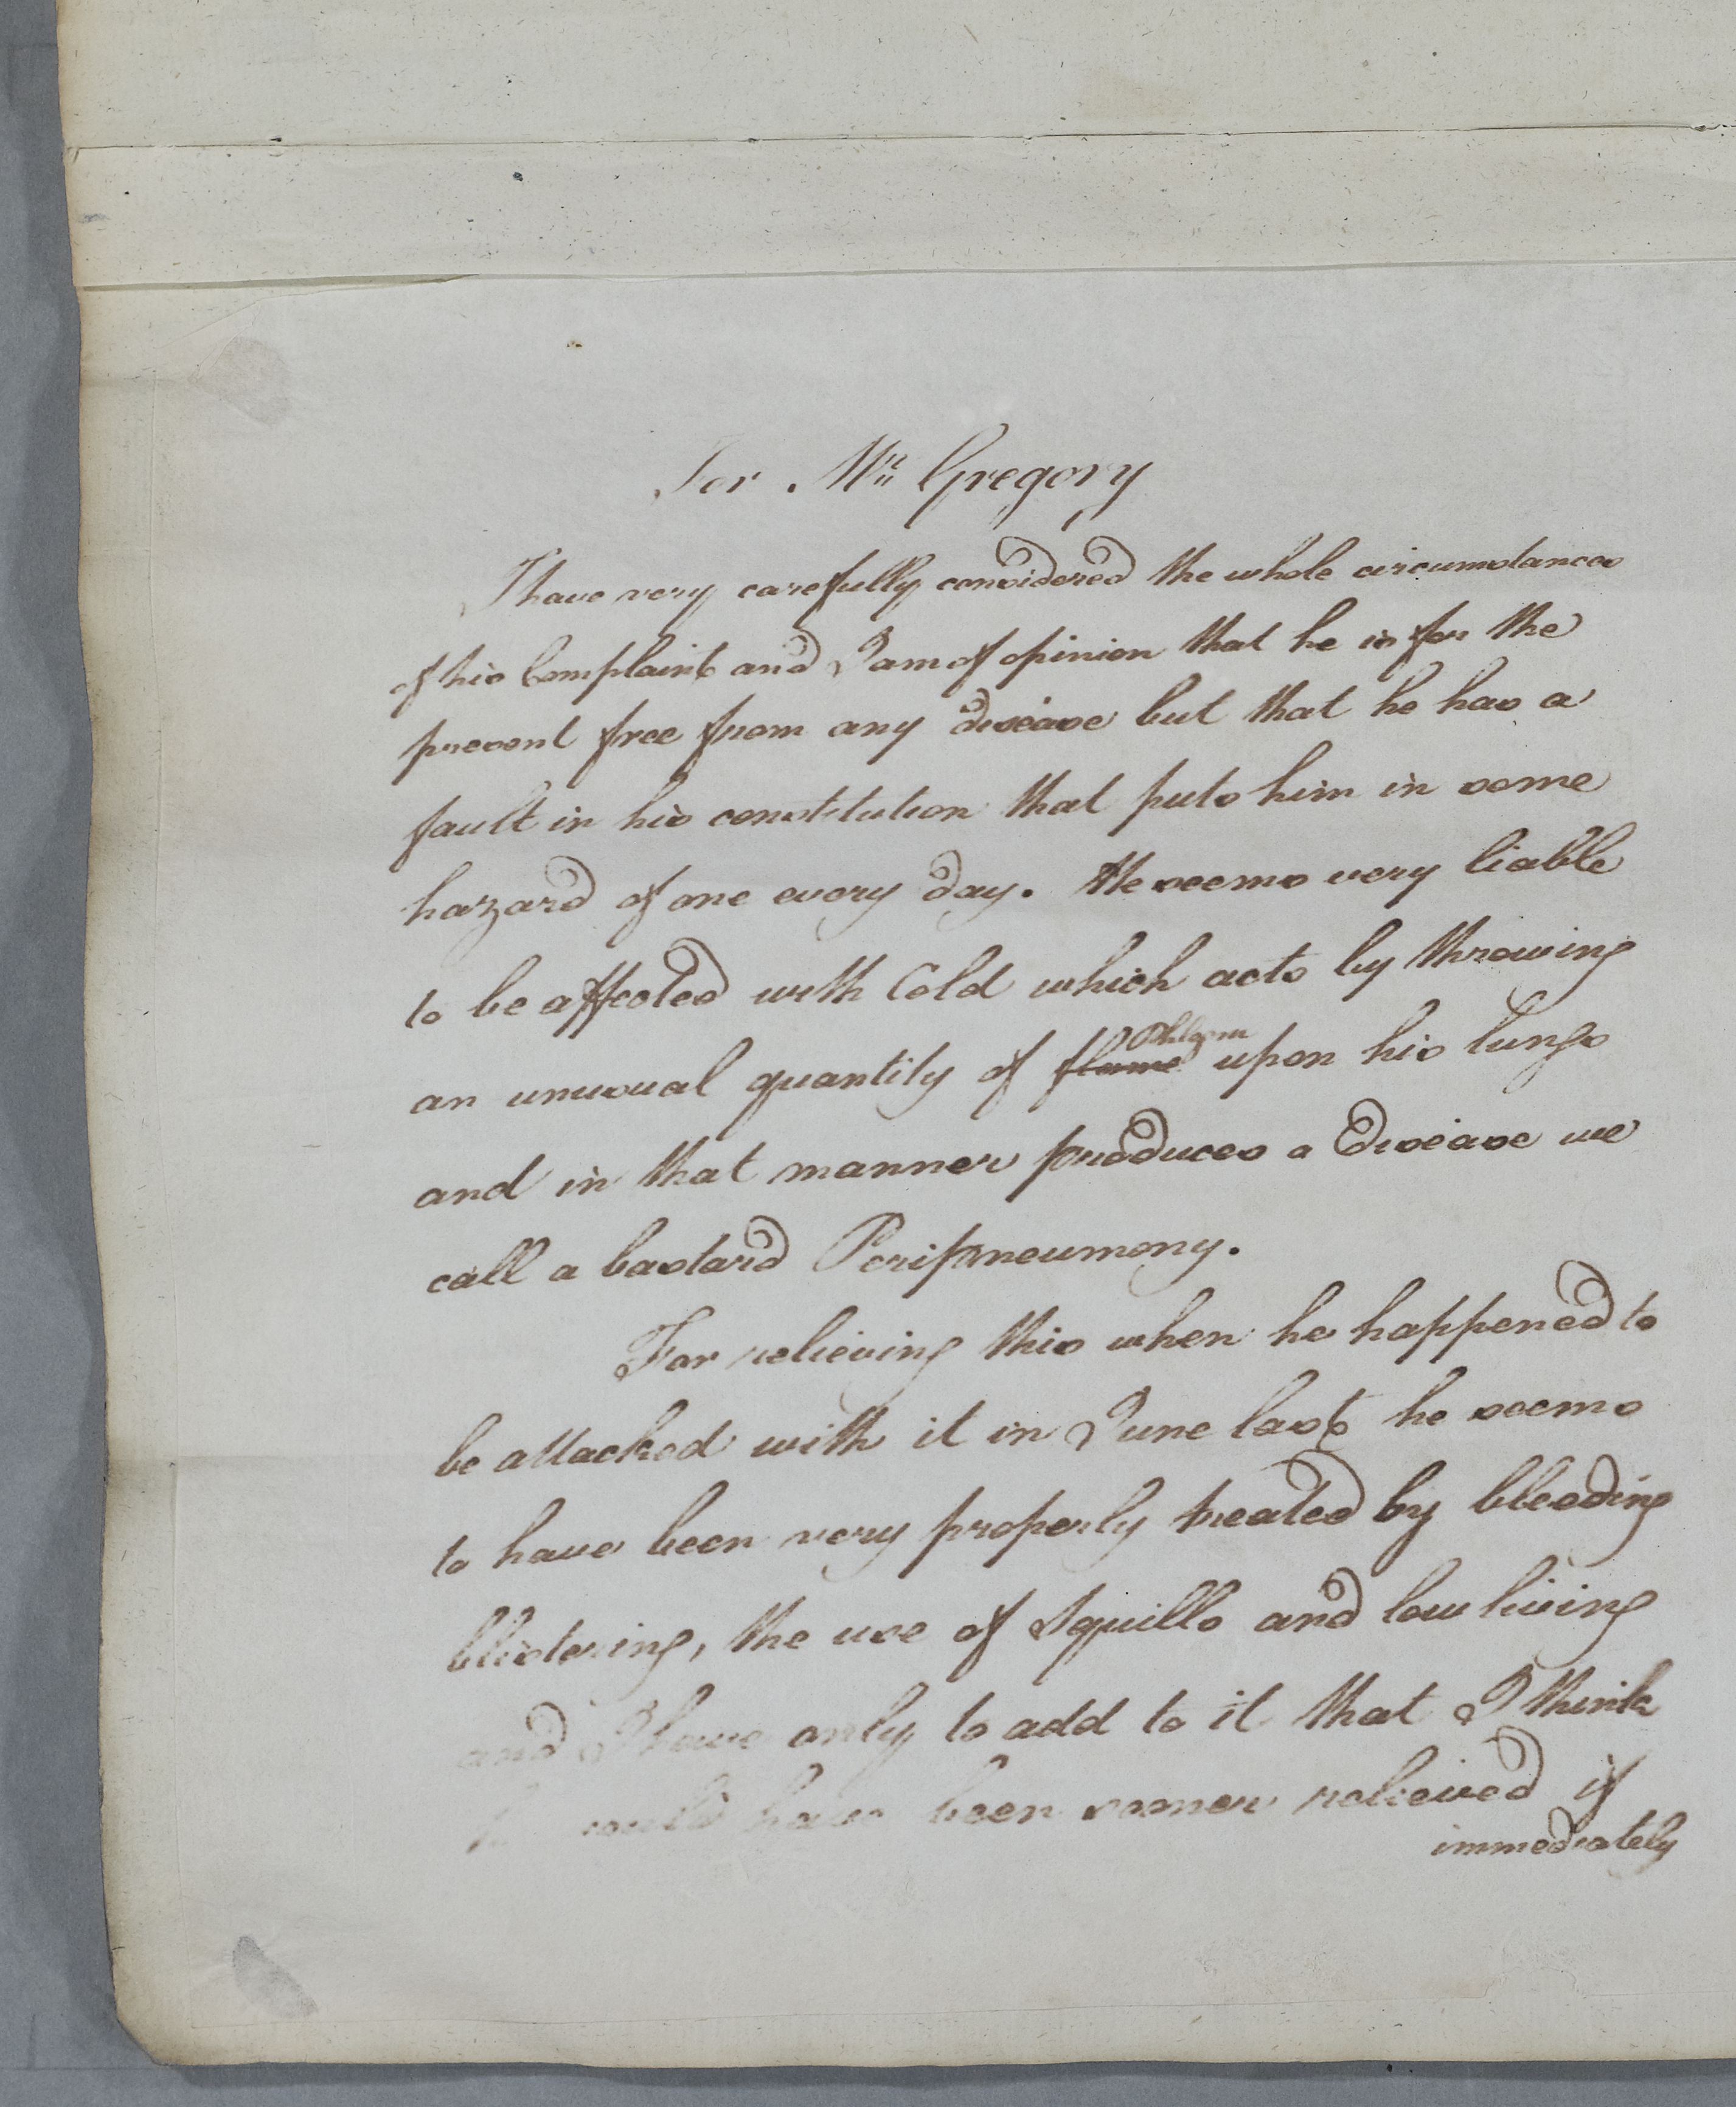 For Mr. Gregory
I have very carefully considered the whole circumstances
of his Complaint and I am of opinion that he is for the
present free from any disease but that he has a
fault in his constitution that puts him in some
hazard of one every day. He seems very liable
to be affected with Cold which acts by throwing
an unusual quantity of flame Phlegm upon his lungs
and in that manner produces a Disease we
call a bastard Peripneumony.
For relieving this when he happened to
be attacked with it in June last he seems
to have been very properly treated by bleeding
blistering, the use of Squills and low living
and I have only to add to it that I think
would have been sooner relieved if
immediately